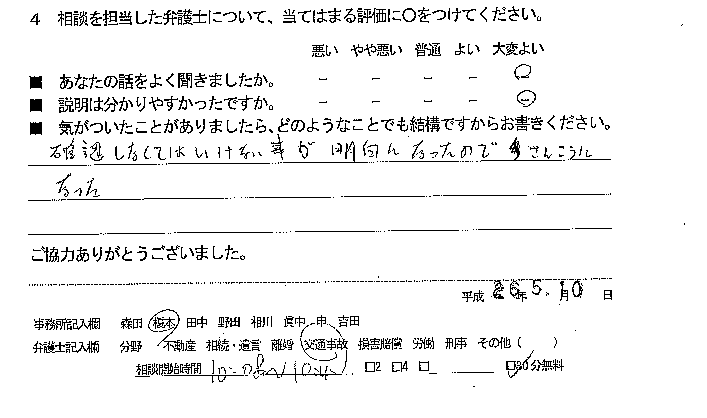 4 相談を担当した弁護士について、当てはまる評価に〇をつけてください。
悪い やや悪い 普通 よい 大変よい
■ あなたの話をよく聞きましたか。 － － － － －
■ 説明は分かりやすかったですか。 － － － － －
■ 気がついたことがありましたら、どのようなことでも結構ですからお書きください。
確認しなくてはいけない事が明白になったので さんこうに
なった
ご協力ありがとうございました。
平成 26年 5.月10 日
事務所記入欄 森田 橋本 田中 野田 相川 眞中 申 吉田
弁護士記入欄 分野 不動産 相続・遺言 離婚 交通事故 損害賠償 労働 刑事 その他（ ）
相談開始時間 □2 □4 □_ □30分無料